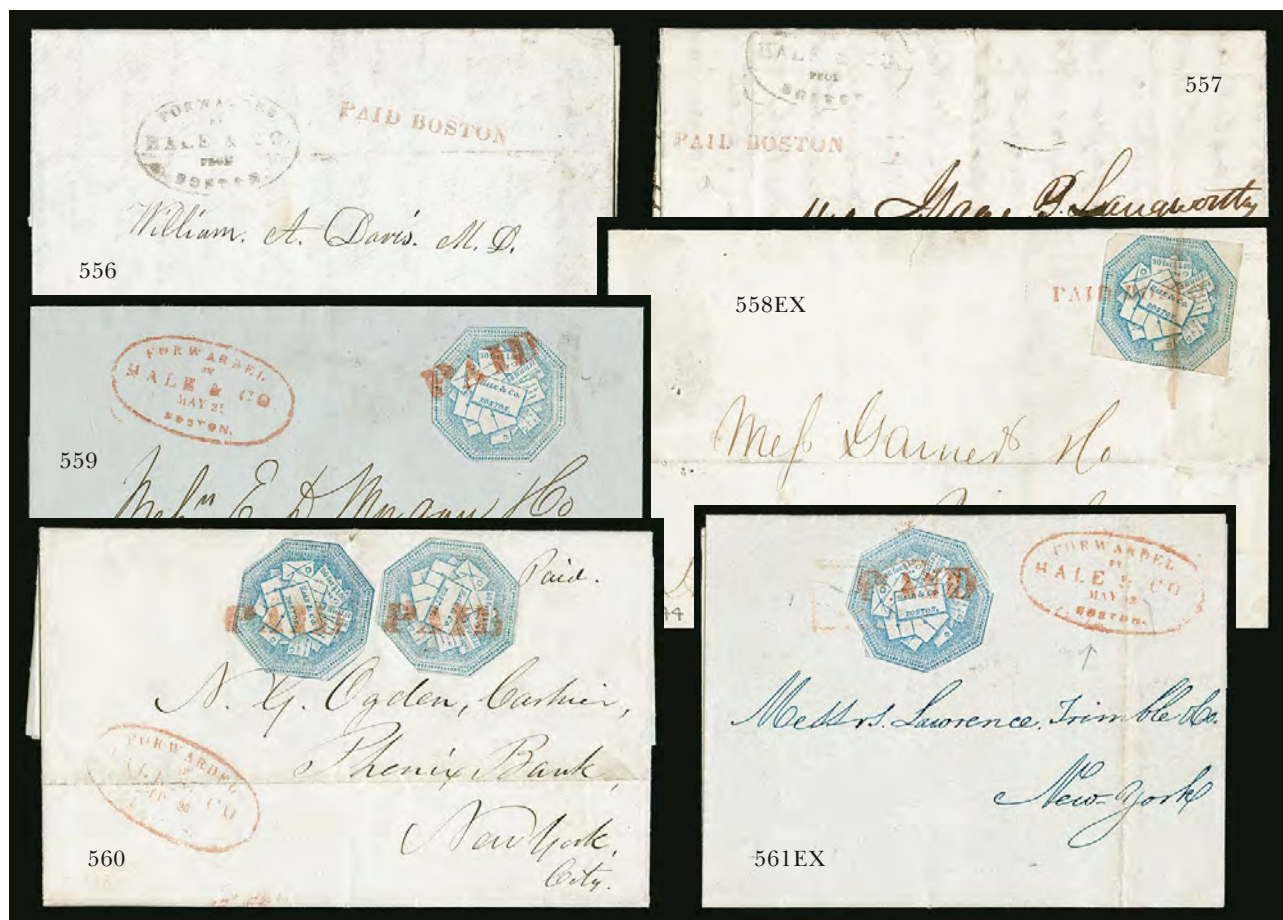 FORWARDED
BY
HALE & CO.
FROM
BOSTON.
PAID BOSTON
William. A. Davis. M. D.
556
HALE & CO.
FROM
BOSTON
557
PAID BOSTON
B. Langworthy
558EX
PAID BO
HALE & Co.
BOSTON.
Mess Garner & Co
FORWARDED
BY
HALE & CO
MAY
BOSTON.
PAID
HALE & Co.
BOSTON.
559
Messrs E D Morgan & Co
PAID
PAID
Paid.
N. G. Ogden, Cashier,
Phenix Bank,
New York,
City.
FORWARDED
CO
560
PAID
HALE & Co.
BOSTON.
FORWARDED
BY
HALE & CO
MAY
BOSTON.
Messrs. Lawrence, Trimble & Co.
New-York
561EX